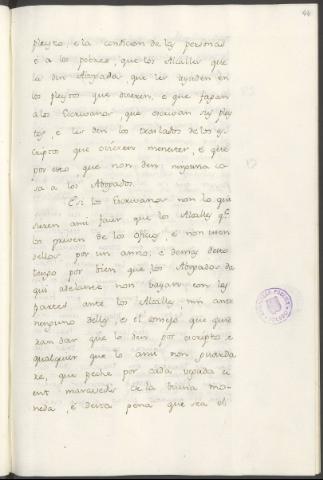 44
pleyto, e la condicion de las personas
e a los pobres, que los Alcalles que
la den Abogada, que les ayuden en
los pleytos que ovieren, e que fagan
a los Escrivanos, que escrivan sus pley
tos, e les den los traslados de los es
criptos que ovieren menester, e que
por esto, que non den ninguna co
sa a los Abogados.
E si los Escrivanos non lo qui
sieren ansi facer, que los Alcalles q.e
los priven de los oficios, e non usen
dellos por un anno, e demas desto
tengo por bien que los Abogados de
qui adelante non vayan con las
partes ante los Alcalles, nin ante
ninguno dellos, e el consejo que quisie
ran dar que lo den por escripto, e
qualquier que lo ansi non guarda
re, que peche por cada vegada ci
ent maravedis de la buena mo
neda, e desta pena que sea el